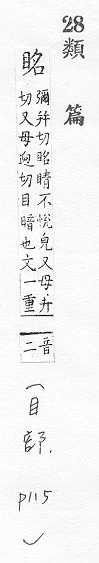 28
類篇
眳
彌幷切眳睛不悅皃又母幷
切又母迥切目暗也文一重
音二
(目部.
p115
)